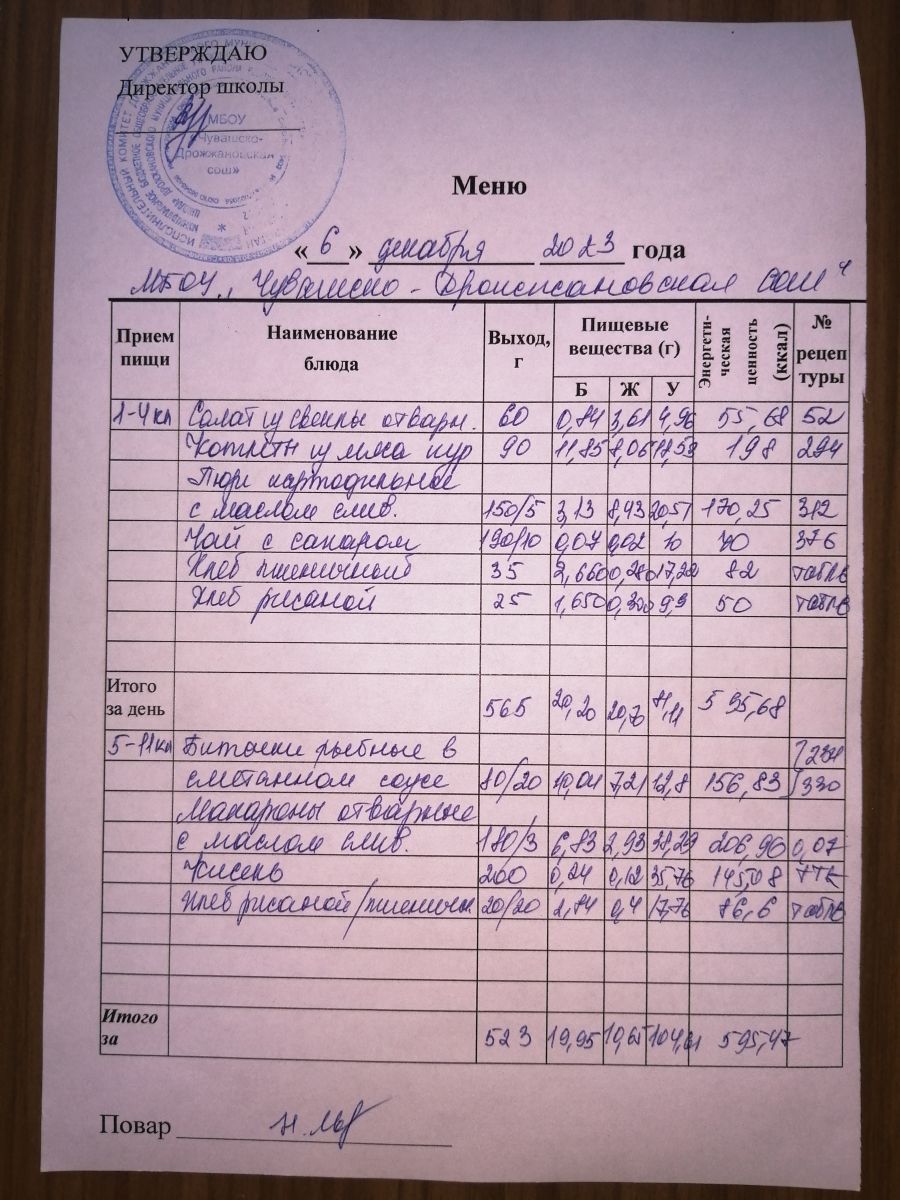 УТВЕРЖДАЮ
Директор школы
МБОУ
«Чувашско-
Дрожжановская
сош»
Меню
« 6 » декабря 2023 года
МБОУ „Чувашско - Дрожжановская СОШ“
Прием пищи Наименование блюда Выход, г Пищевые вещества (г) Энергети-ческая ценность (ккал) № рецеп туры
Б Ж У
1-4 кл Салат из свеклы отварн. 60 0,84 3,61 4,96 55,68 52
Котлеты из мяса кур 90 11,85 8,06 18,53 198 294
Пюре картофельное
с маслом слив. 150/5 3,13 8,43 20,51 170,25 312
Чай с сахаром 190/10 0,07 0,02 10 40 376
Хлеб пшеничный 35 2,660 0,280 17,22 82 табл8
Хлеб ржаной 25 1,650 0,300 9,9 50 табл8
Итого за день 565 20,20 20,70 81,11 595,68
5-11 кл Биточки рыбные в 234
сметанном соусе 80/20 10,04 7,21 12,8 156,83 330
Макароны отварные
с маслом слив. 180/3 6,83 2,93 38,29 206,96 0,07
Кисель 200 0,24 0,12 35,76 145,08 ТТК
Хлеб ржаной/пшеничн 20/20 2,84 0,4 17,76 86,6 табл8
Итого за 523 19,95 10,65 104,61 595,47
Повар